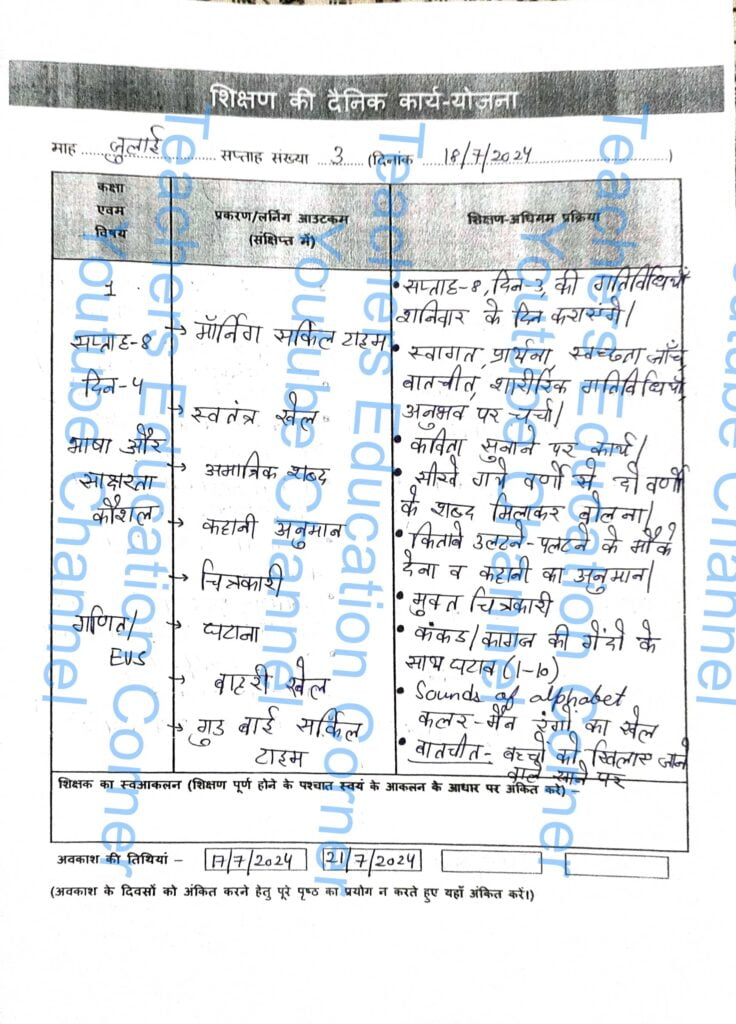 शिक्षण की दैनिक कार्य-योजना
माह ... जुलाई ... सप्ताह संख्या ... 3 ... (दिनांक ... 18/7/2024 ...)
कक्षा
एवम
विषय
प्रकरण/लर्निंग आउटकम
(संक्षिप्त में)
शिक्षण-अधिगम प्रक्रिया
1
सप्ताह-8
दिन-4
भाषा और
साक्षरता
कौशल
गणित/
EVS
→ मॉर्निंग सर्किल टाइम
→ स्वतंत्र खेल
→ अमात्रिक शब्द
→ कहानी अनुमान
→ चित्रकारी
→ घटाना
→ बाहरी खेल
→ गुड बाई सर्किल
टाइम
• सप्ताह-8, दिन-3, की गतिविधियाँ
शनिवार के दिन कराएगें।
• स्वागत, प्रार्थना, स्वच्छता जाँच,
बातचीत, शारीरिक गतिविधियाँ,
अनुभव पर चर्चा।
• कविता सुनाने पर कार्य।
• सीखे गये वर्णों से दो वर्णों
के शब्द मिलाकर बोलना।
• किताबें उलटने-पलटने के मौके
देना व कहानी का अनुमान।
• मुक्त चित्रकारी
• कंकड/कागज की गेंदो के
साथ घटाव (1-10)
• Sounds of alphabet
कलर-मैन रंगों का खेल
• बातचीत- बच्चों को खिलाए जाने
वाले खाने पर
शिक्षक का स्वआकलन (शिक्षण पूर्ण होने के पश्चात स्वयं के आकलन के आधार पर अंकित करें) –
अवकाश की तिथियां – 17/7/2024 21/7/2024
(अवकाश के दिवसों को अंकित करने हेतु पूरे पृष्ठ का प्रयोग न करते हुए यहाँ अंकित करें।)
Teachers Education Corner
Youtube Channel
Teachers Education Corner
Youtube Channel
Teachers Education Corner
Youtube Channel